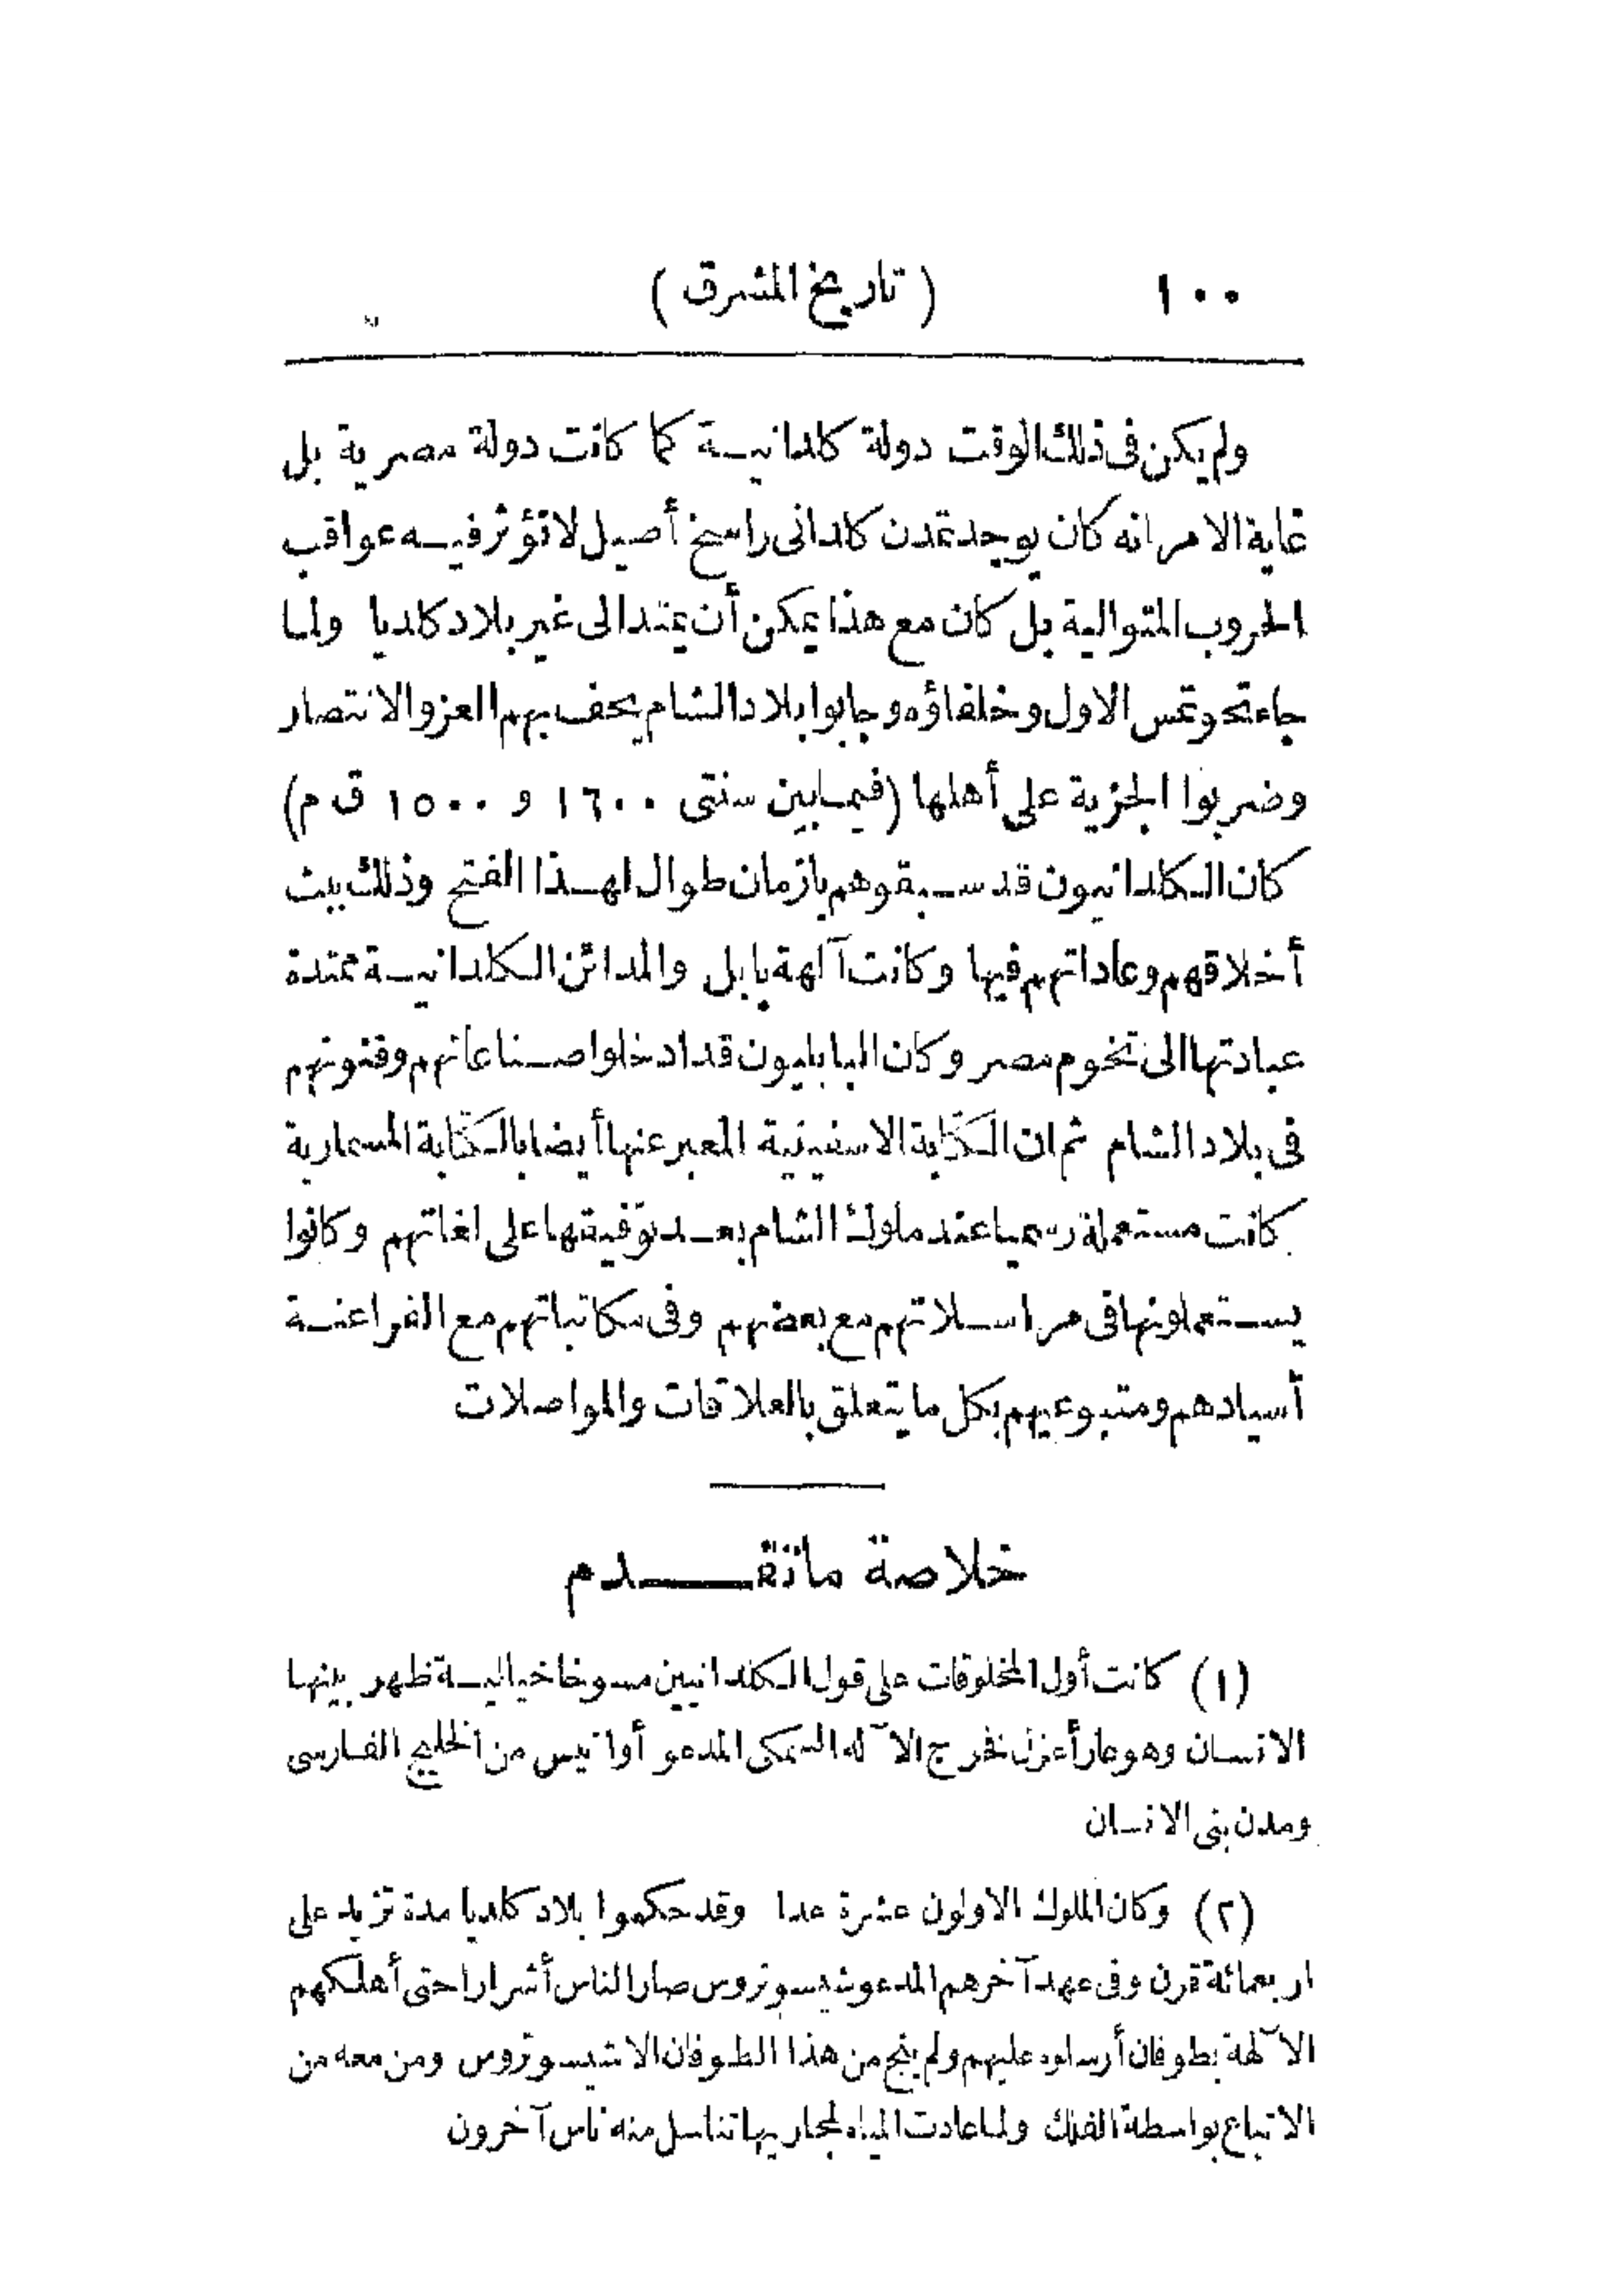 ١٠٠ (تاريخ المشرق)
ولم يكن فى ذلك الوقت دولة كلدانية كما كانت دولة مصرية بل
غاية الامر انه كان يوجد تمدن كلدانى راسخ أصيل لا تؤثر فيه عواقب
الحروب المتوالية بل كان مع هذا يمكن أن يمتد الى غير بلاد كلديا ولما
جاء تحوتمس الاول وخلفاؤه وجابوا بلاد الشام يحف بهم العز والانتصار
وضربوا الجزية على أهلها (فيما بين سنتى ١٦٠٠ و ١٥٠٠ ق م)
كان الكلدانيون قد سبقوهم بازمان طوال لهذا الفتح وذلك ببث
أخلاقهم وعاداتهم فيها وكانت آلهة بابل والمدائن الكلدانية ممتدة
عبادتها الى تخوم مصر وكان البابليون قد ادخلوا صناعاتهم وفنونهم
فى بلاد الشام ثم ان الكتابة الاسفينية المعبر عنها أيضا بالكتابة المسمارية
كانت مستعملة رسميا عند ملوك الشام بعد توفيقها على لغاتهم وكانوا
يستعملونها فى مراسلاتهم مع بعضهم وفى مكاتباتهم مع الفراعنة
أسيادهم ومتبوعيهم بكل ما يتعلق بالعلاقات والمواصلات
خلاصة ما تقدم
(١) كانت أول المخلوقات على قول الكلدانيين مسوخا خيالية ظهر بينها
الانسان وهو عار أعزل نخرج الآله السمكى المدعو أوانيس من الخليج الفارسى
ومدن بنى الانسان
(٢) وكان الملوك الاولون عشرة عدا وقد حكموا بلاد كلديا مدة تزيد على
اربعمائة قرن وفى عهد آخرهم المدعو شيسوتروس صار الناس أشرارا حتى أهلكهم
الآلهة بطوفان أرسلوه عليهم ولم ينج من هذا الطوفان الا شيسوتروس ومن معه من
الاتباع بواسطة الفلك ولما عادت المياه لمجاريها تناسل منه ناس آخرون